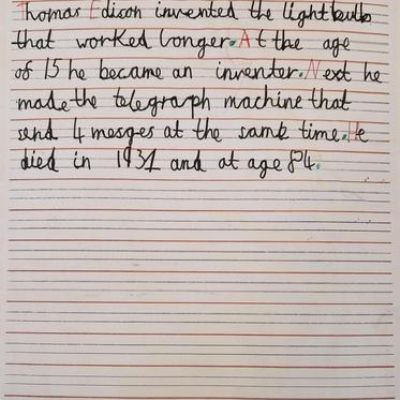 Thomas Edison invented the lightbulb
that worked longer. At the age
of 15 he became an inventer. Next he
made the telegraph machine that
send 4 mesges at the same time. He
died in 1931 and at age 84.